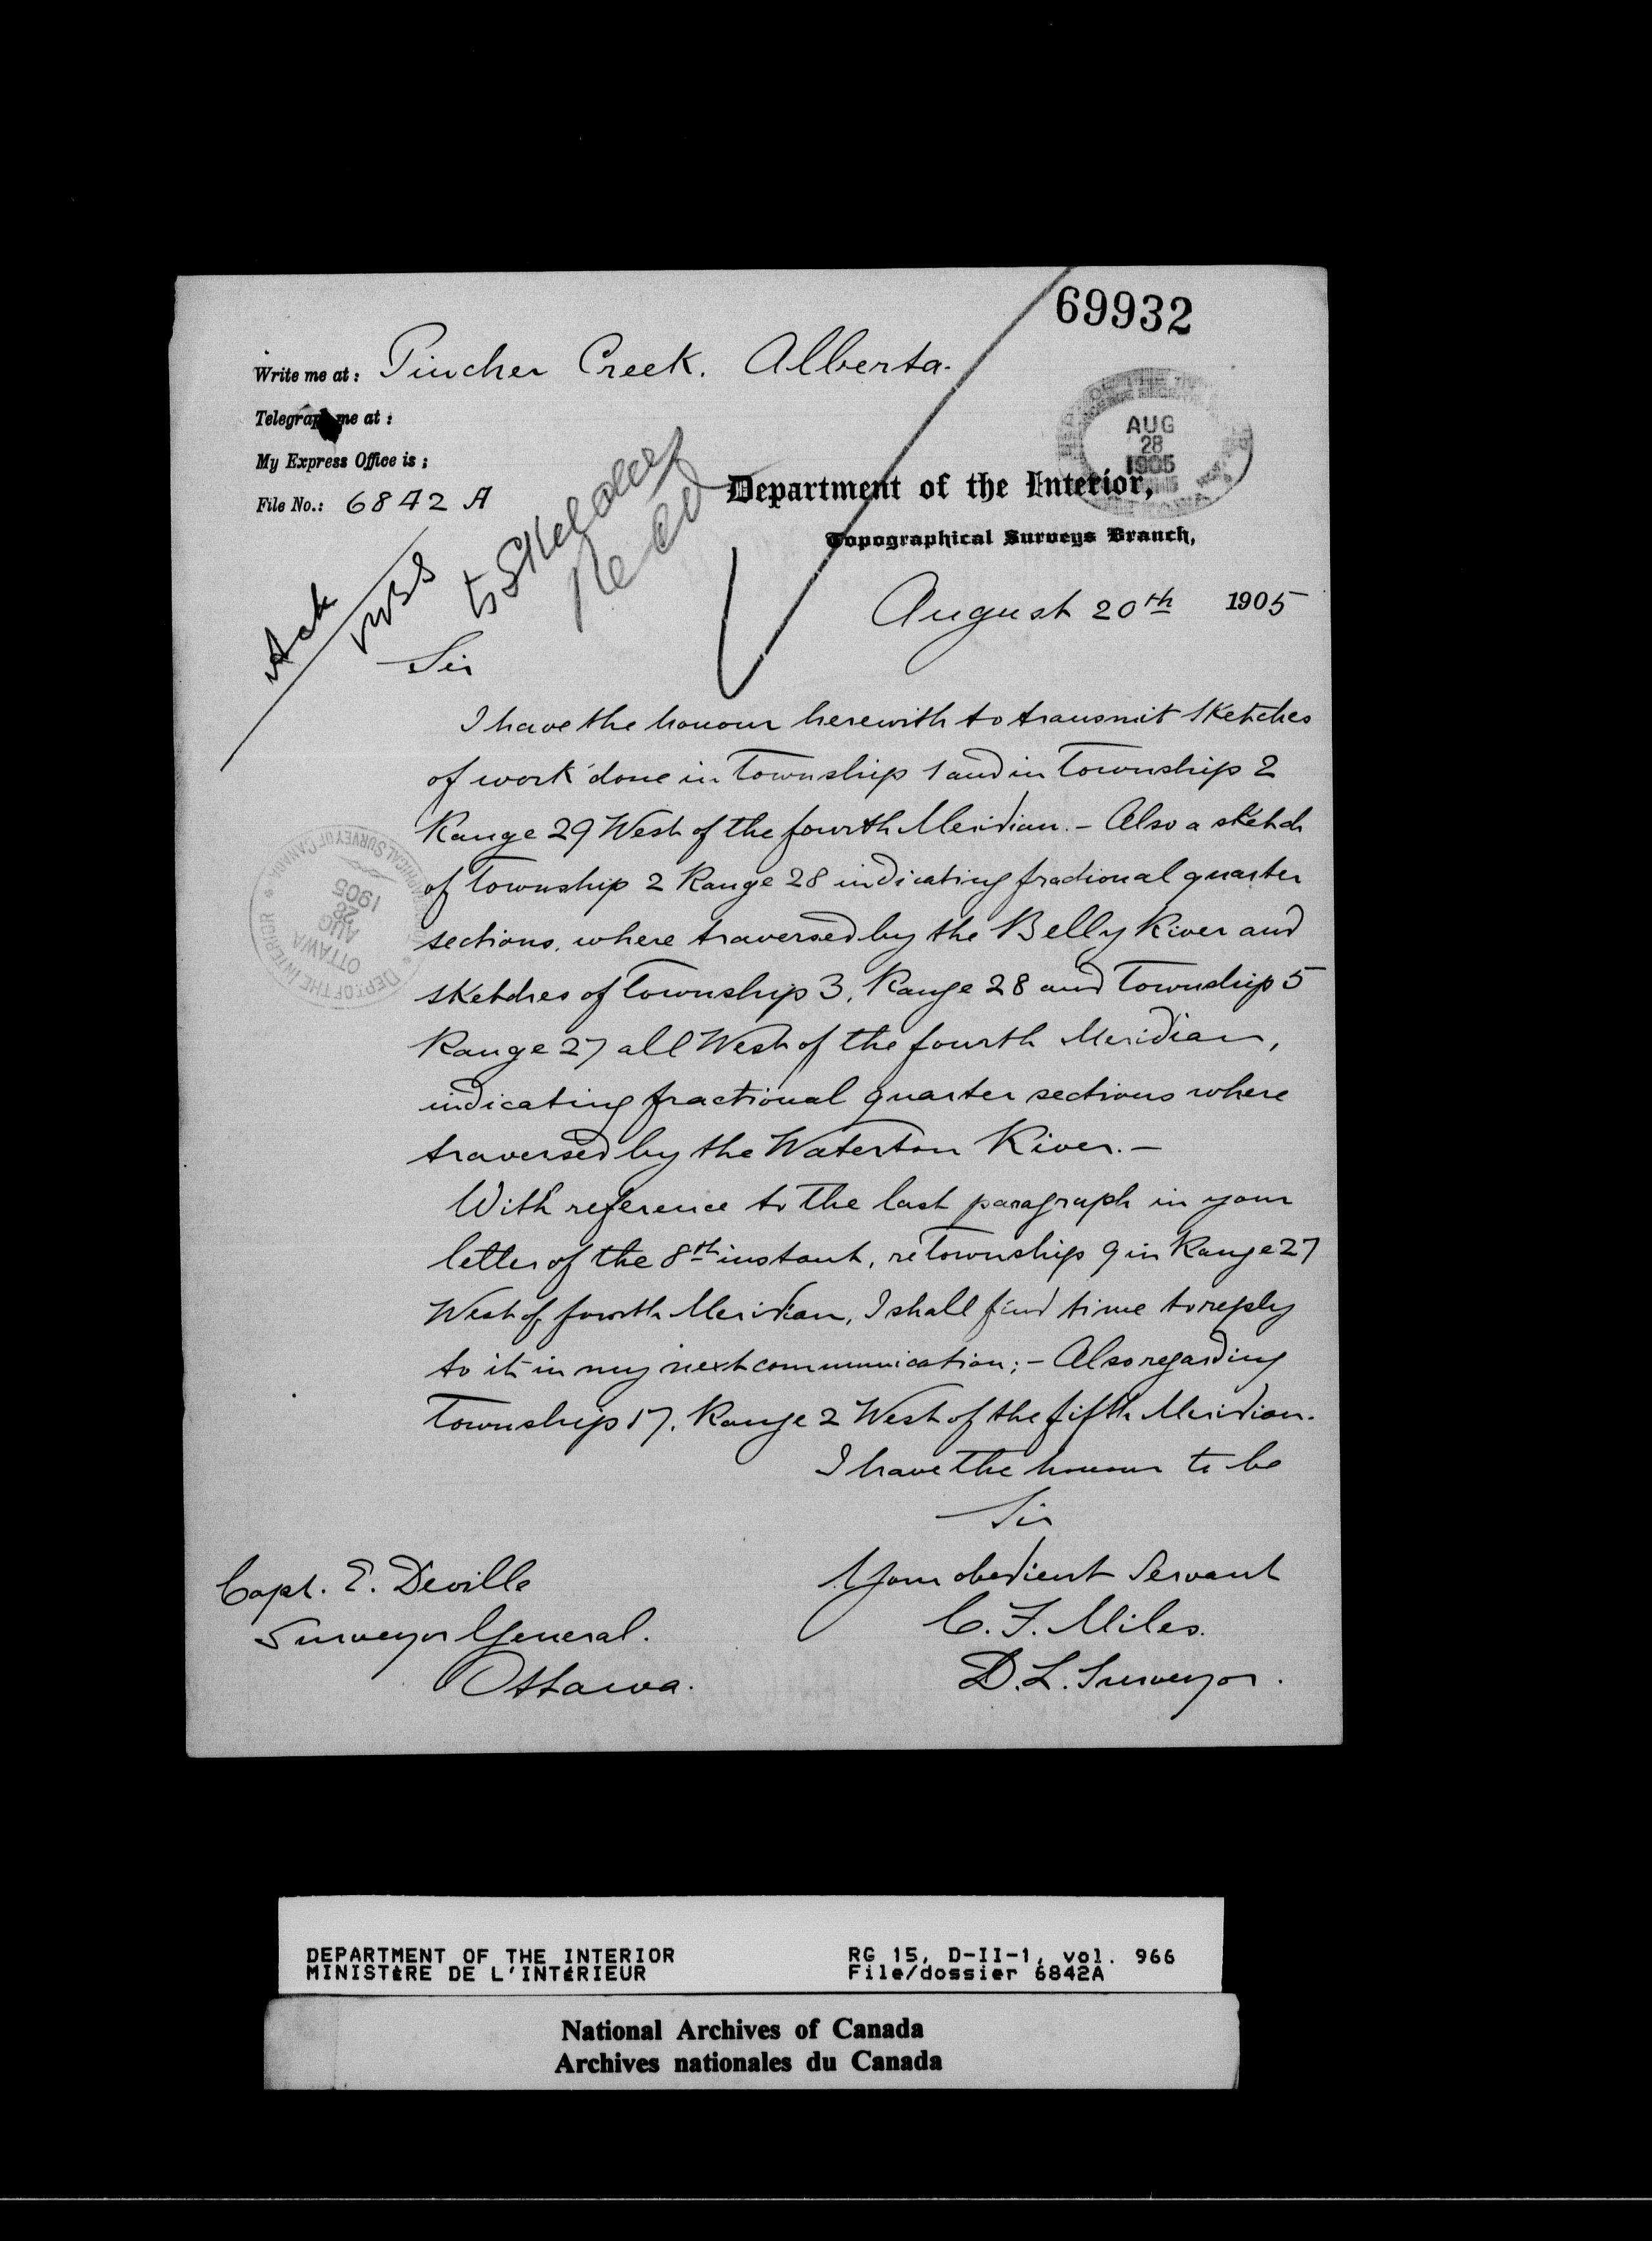 69932
Write me at: Pincher Creek. Alberta.
Telegraph me at:
My Express Office is:
File No.: 6842 A
AUG
28
1905
Department of the Interior,
Topographical Surveys Branch,
Ack
5 Sketches
Recd
August 20th 1905
Sir
I have the honour herewith to transmit sketches
of work done in Township 1 and in Township 2
Range 29 West of the fourth Meridian. – Also a sketch
of Township 2 Range 28 indicating fractional quarter
sections, where traversed by the Belly River and
sketches of Township 3, Range 28 and Township 5
Range 27 all West of the fourth Meridian,
indicating fractional quarter sections where
traversed by the Waterton River. –
With reference to the last paragraph in your
letter of the 8th instant, re Township 9 in Range 27
West of fourth Meridian, I shall find time to reply
to it in my next communication; – Also regarding
Township 17, Range 2 West of the fifth Meridian.
I have the honour to be
Sir
Your obedient Servant
C. F. Miles.
D. L. Surveyor.
Capt. E. Deville
Surveyor General.
Ottawa.
DEPT. OF THE INTERIOR
TOPOGRAPHICAL SURVEY OF CANADA
OTTAWA
AUG
28
1905
DEPARTMENT OF THE INTERIOR
MINISTÈRE DE L'INTÉRIEUR
RG 15, D-II-1, vol. 966
File/dossier 6842A
National Archives of Canada
Archives nationales du Canada